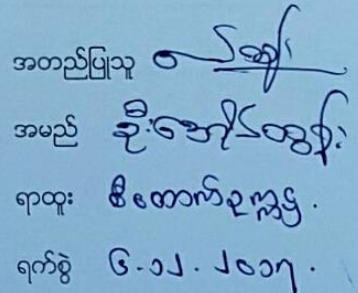 အတည်ပြုသူ
အမည် ဦးအောင်ထွန်း
ရာထူး စီထောက်ဥက္ကဋ္ဌ.
ရက်စွဲ ၆.၁၂.၂၀၁၇.